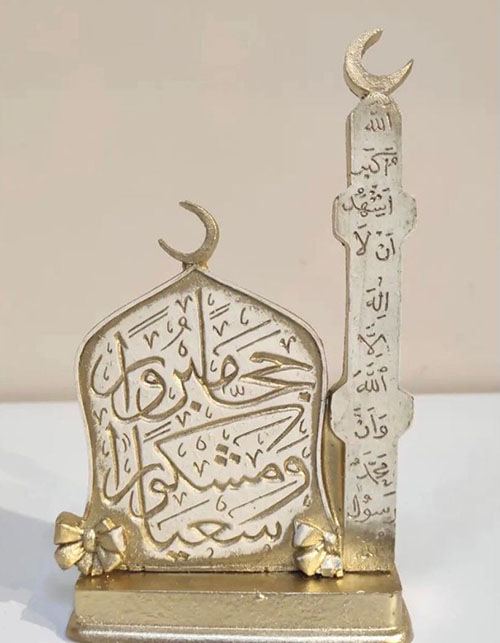 حجّاً مَبرُوراً
وَمشكوراً
سعياً
الله
أكبر
أشهد
أن لا
إله
إلا
الله
وأن
محمد
رسول